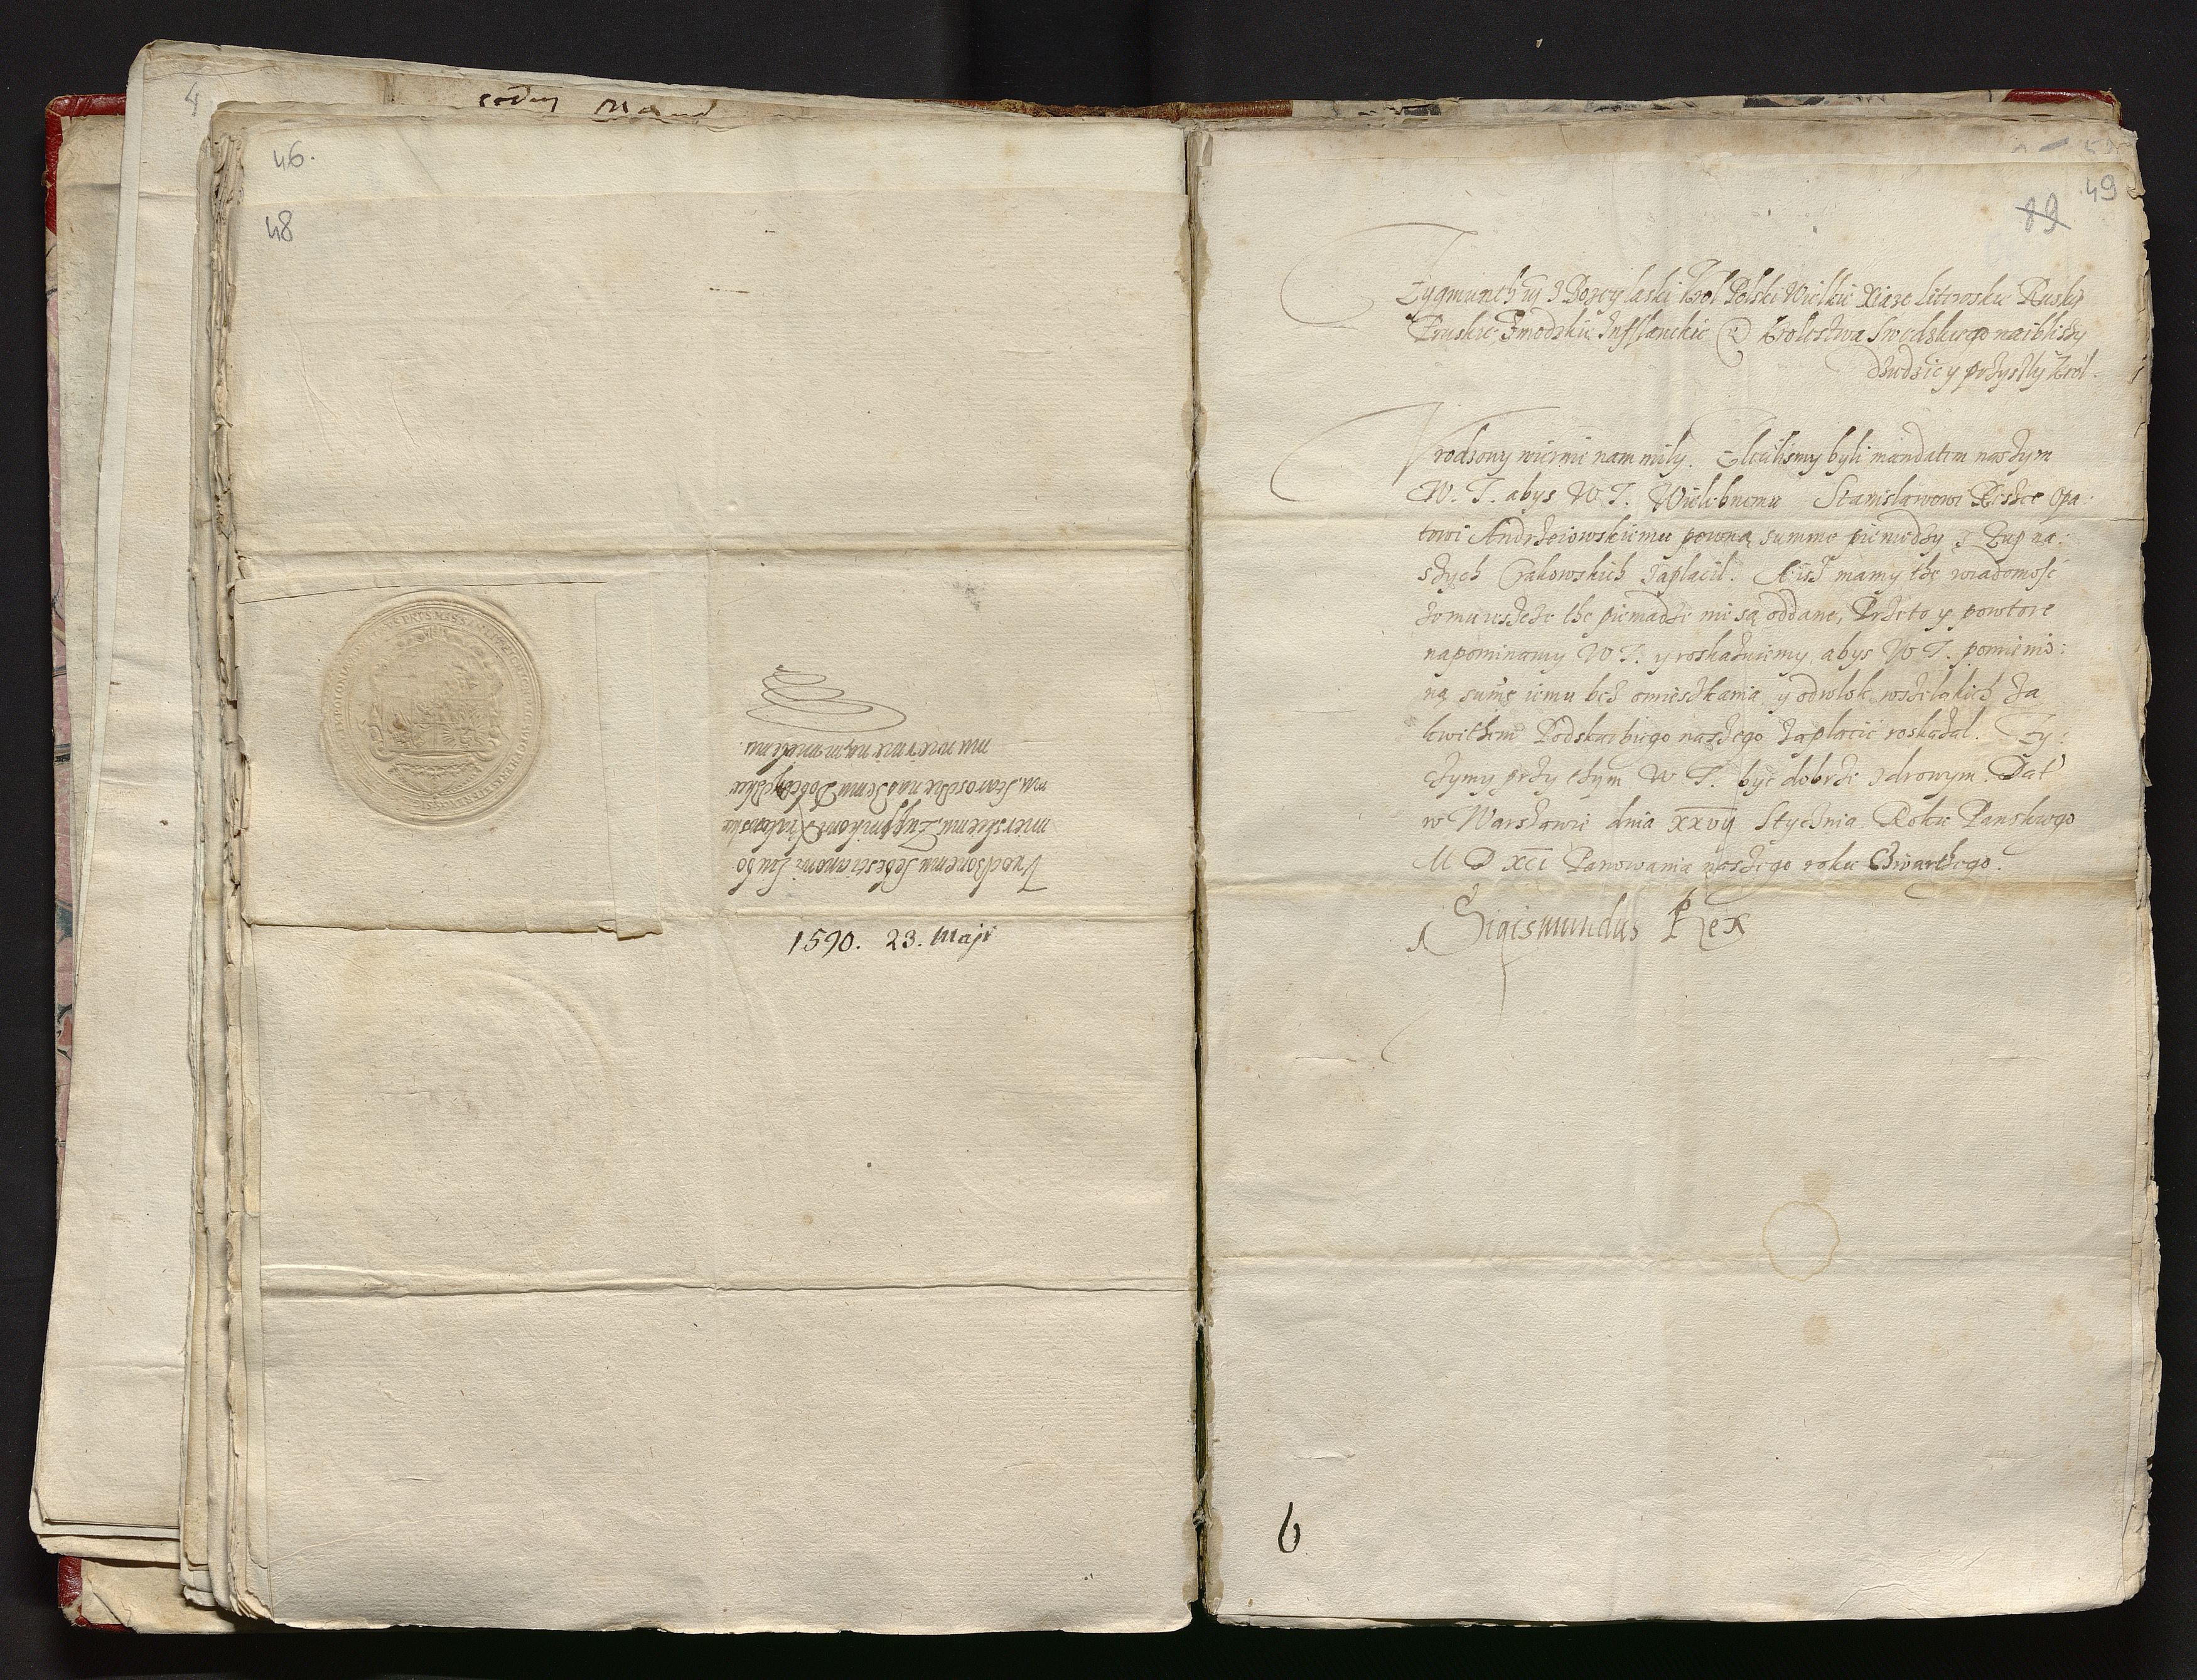 46.
48
Vrodzonemu Sebestianowi Lubo
mierskiemu Zuppnikowi Krakowskie
mu Staroscie naszemu Dobczyckie
mu wiernie nam miłemu.
1590. 23. Maji
49
89
Zygmunth III Z Bozey laski Krol Polski Wielkie Xiaze Litewskie Ruskie
Pruskie Zmodzkie Inflanckie Krolestwa Swedzkiego naiblizszy
dziedzic y przyszly Krol.
Vrodzony wiernie nam mily. Zleculismy byli mandatem naszym
W. T. abys W T. Wielebnemu Stanislawowi Reszce Opa:
towi Andrzeiowskiemu pewną summe pieniedzy z Zup na:
szych Crakowskich zaplacil. A isz mamy the wiadomosc
ze the pieniadze nie są oddane, Przeto y powtore
napominamy W T. y roskazuiemy, abys W T. pomienio:
ną sumę iemu bez omieszkania y odwlok wszelakich za
kwithem Podskarbiego naszego zaplacic roskazal. Zy:
czymy przy thym W T. byc dobrze zdrowym. Dat
w Warszawie dnia XXVII Stycznia Roku Panskiego
M D XCI Panowania naszego roku Czwarthego.
Sigismundus Rex
6